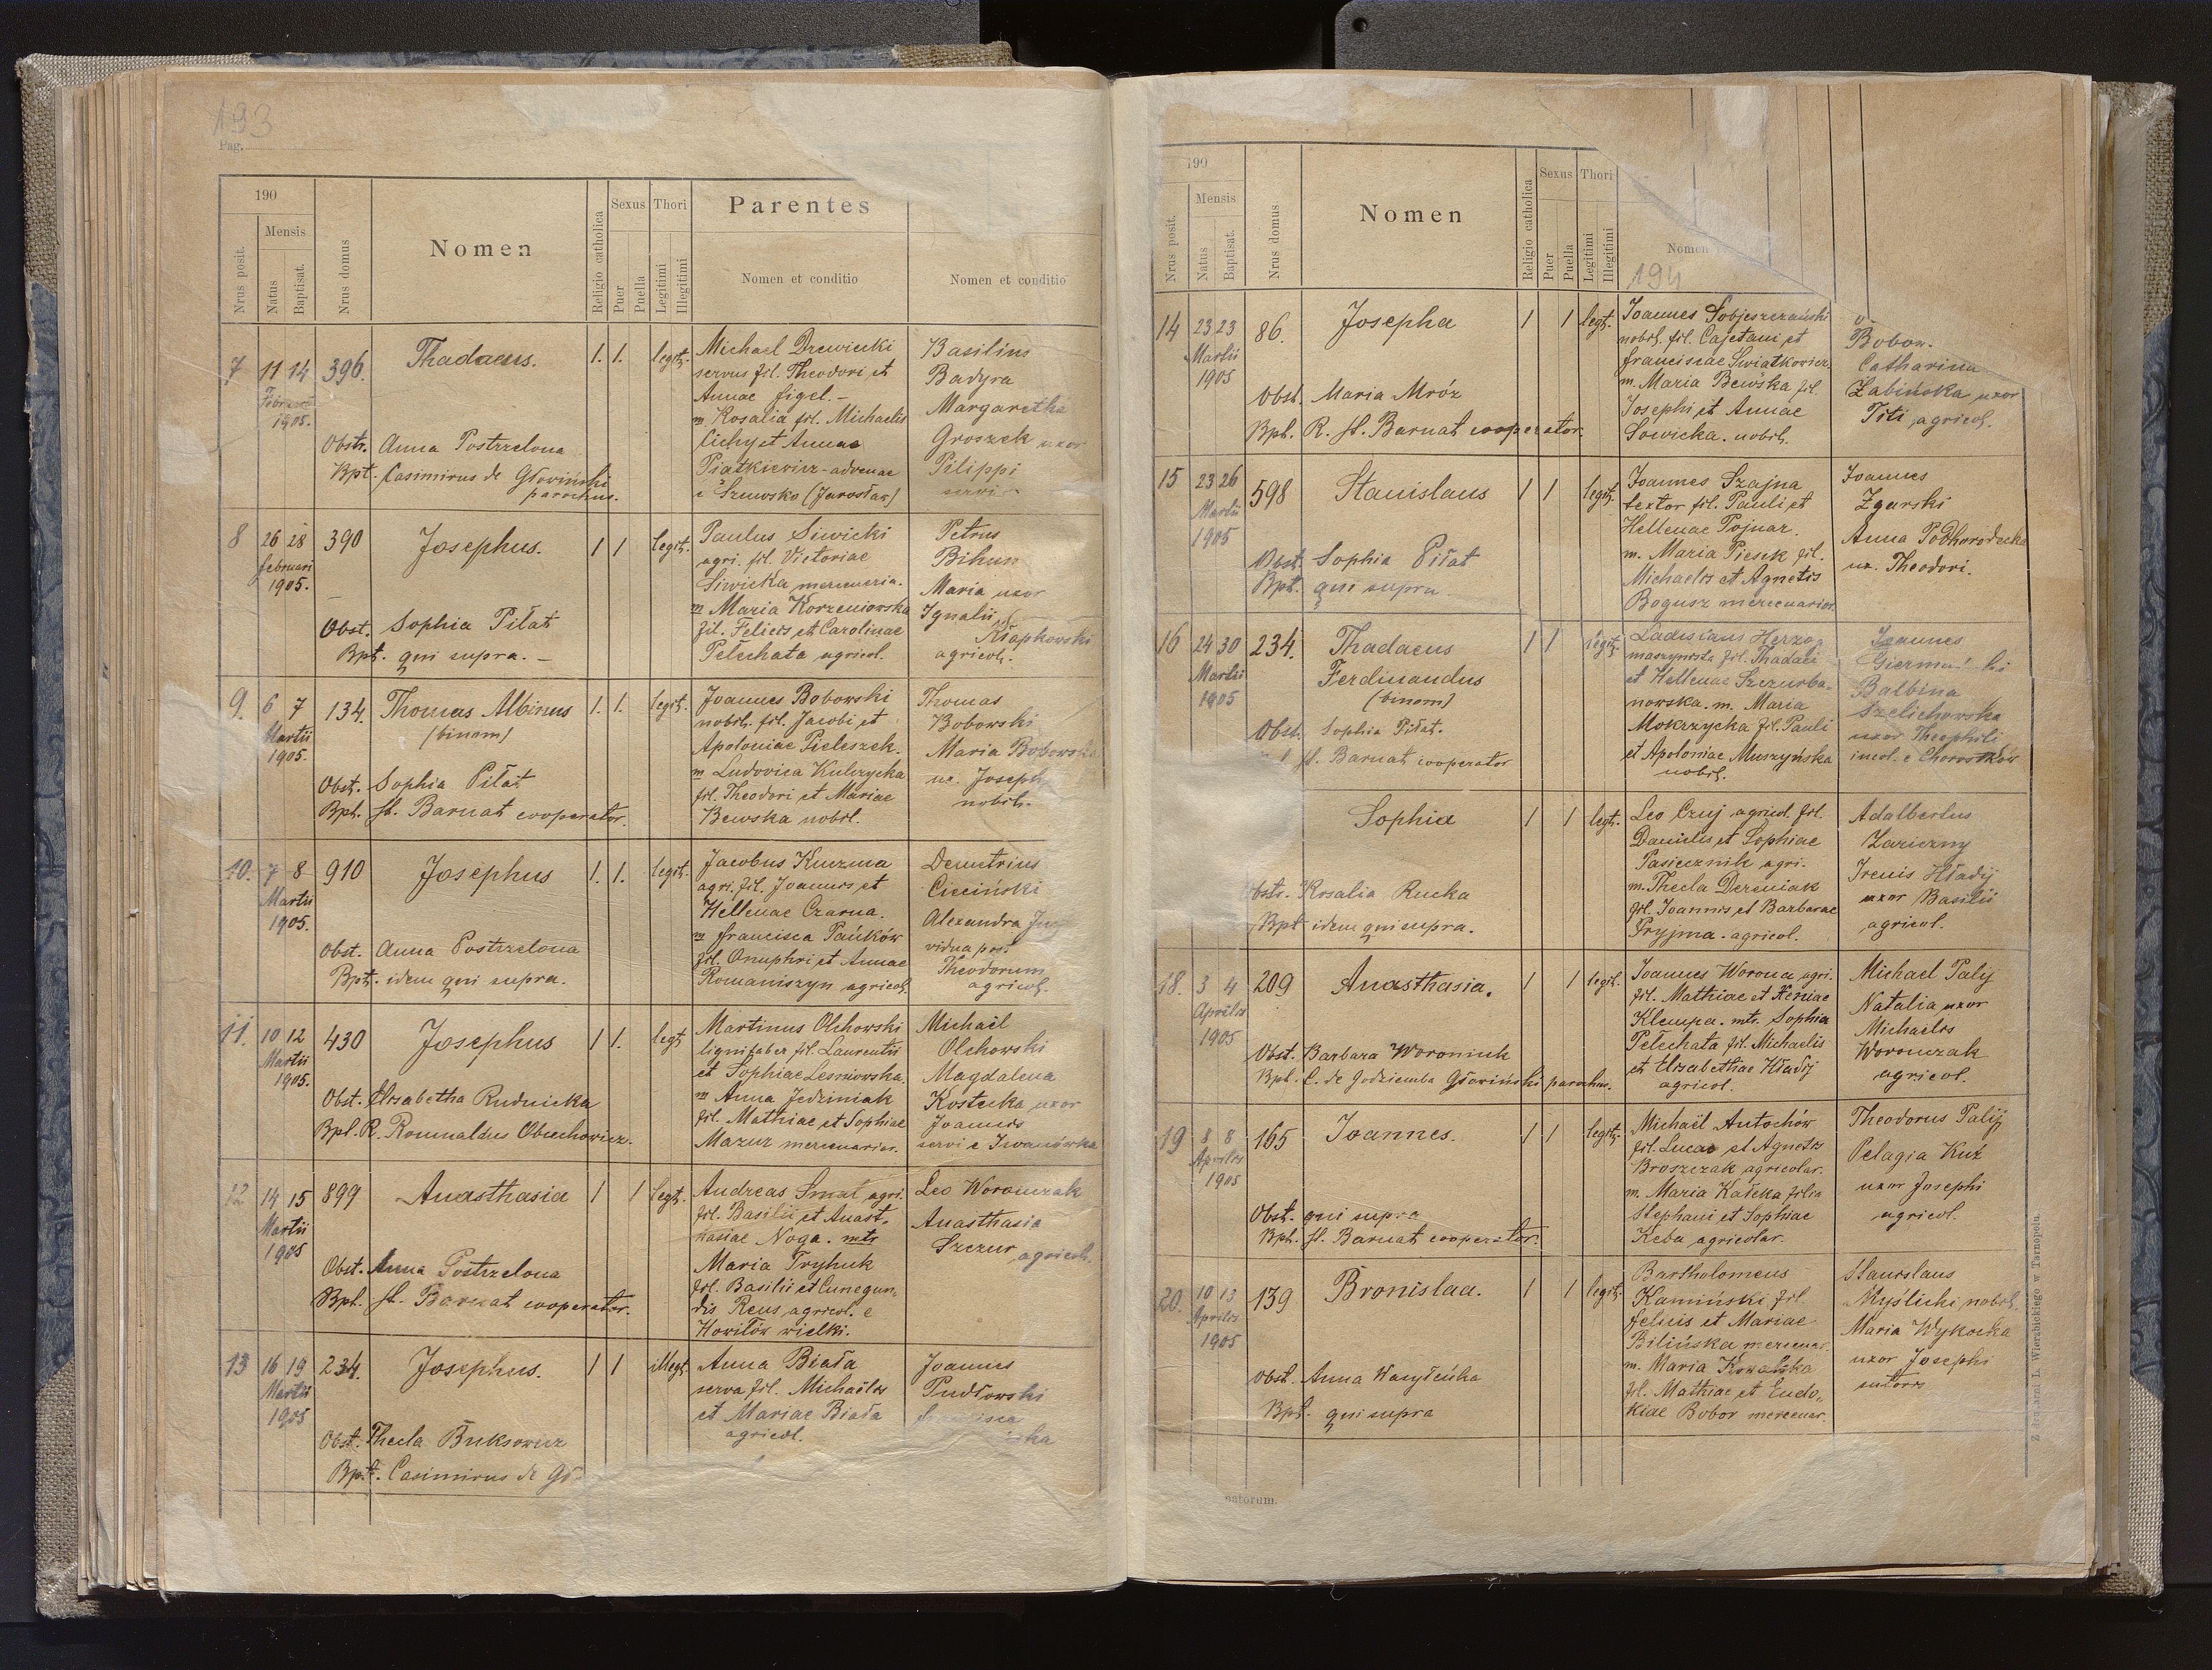 193
Pag.
190
Mensis
Nrus posit.
Natus
Baptisat.
Nrus domus
Nomen
Religio catholica
Sexus
Puer
Puella
Thori
Legitimi
Illegitimi
Parentes
Nomen et conditio
Nomen et conditio
7 11 14 396. Thadaeus. 1. 1. legit.
Februari
1905.
Obstr. Anna Postrzelona
Bpt. Casimirus de Głowiński
parochus.
Michael Drewicki
servus fil. Theodori et
Annae Figel. -
m Rosalia fil. Michaelis
Cichy et Annae
Piatkiewicz - advenae
e Szewsko (Jarosław)
Basilius
Badyra
Margaretha
Groszek uxor
Pilippi
servi
8 26 28 390 Josephus. 1 1 legit.
Februari
1905.
Obst. Sophia Piłat
Bpt. qui supra. -
Paulus Siwicki
agri. fil. Victoriae
Siwicka merceneria.
m Maria Korzeniowska
fil. Felicis et Carolinae
Pelechata agricol.
Petrus
Bihun
Maria uxor
Ignatii
Kłapkowski
agricol.
9. 6 7 134. Thomas Albinus 1. 1. legit.
Martii (binom)
1905.
Obst. Sophia Piłat
Bpt. St. Barnat cooperator.
Joannes Bobowski
nobil. fil. Jacobi et
Apoloniae Pieleszek.
m Ludovica Kulczycka
fil. Theodori et Mariae
Bewska nobil.
Thomas
Bobowski
Maria Bobowska
ux. Joseph
nobil.
10. 7 8 910 Josephus 1. 1. legit.
Martii
1905.
Obst. Anna Postrzelona
Bpt. idem qui supra.
Jacobus Kuczma
agri. fil. Joannis et
Hellenae Czarna.
m Francisca Pańków
fil. Onuphri et Annae
Romaniszyn agricol.
Demetrius
Cieciński
Alexandra
vidua post
Theodorum
agricol.
11. 10 12 430 Josephus 1 1. legt.
Martii
1905.
Obst. Elisabetha Rudnicka
Bpt. R. Romualdus Obuchowicz.
Martinus Olchowski
lignifaber fil. Laurentii
et Sophiae Lesniowska.
m Anna Jedziniak
fil. Mathiae et Sophiae
Mazur mercenarior.
Michaël
Olchowski
Magdalena
Kostecka uxor
Joannis
servi e Iwanówka
12 14 15 899 Anasthasia 1 1 legt.
Martii
1905
Obst. Anna Postrzelona
Bpt. St. Barnat cooperator.
Andreas Smat agri.
fil. Basilii et Anast.
hasiae Noga. mtr
Maria Tryhuk
fil. Basilii et Cunegun,
dis Reus, agricol. e
Howiłów wielki.
Leo Woronczak
Anasthasia
Szczur agricol.
13 16 19 234. Josephus. 1 1 illegt.
Martii
1905
Obst. Thecla Buksowicz
Bpt. Casimirus de Gł
Anna Biała
serva fil. Michaëlis
et Mariae Biała
agricol.
Joannes
Pudłowski
Francisca
ska
190
Mensis
Nrus posit.
Natus
Baptisat.
Nrus domus
Nomen
Religio catholica
Sexus
Puer
Puella
Thori
Legitimi
Illegitimi
Nomen
194
14 23 23 86. Josepha 1 1 legt.
Martii
1905
Obst. Maria Mróz
Bpt. R. St. Barnat cooperator
Joannes Sobjeszczański
nobil. fil. Cajetani et
Franciscae Swiatkowicz
m. Maria Bewska fil.
Josephi et Annae
Sowicka. nobil.
Bobow.
Catharina
Żabińska uxor
Titi agricol.
15 23 26 598 Stanislaus 1 1 legit.
Martii
1905
Obst. Sophia Piłat
Bpt. qui supra
Joannes Szajna
textor fil. Pauli et
Hellenae Pojnar.
m. Maria Piesek fil.
Michaelis et Agnetis
Bogusz mercenarior.
Joannes
Zgurski
Anna Podhorodecka
ux. Theodori.
16 24 30 234. Thadaeus 1 1 legit.
Martii Ferdinandus
1905 (binom)
Obst. Sophia Piłat.
St. Barnat cooperator
Ladislaus Herzog
maszynista fil. Thadaei
et Hellenae Szczurba-
nowska. m. Maria
Mokrzycka fil. Pauli
et Apoloniae Muszyńska
nobil.
Joannes
Balbina
Szelichowska
uxor Theophili
incol. e Chorostków
Sophia 1 1 legt.
Obstr. Rosalia Rucka
Bpt idem qui supra.
Leo Czuj agricol. fil.
Danielis et Sophiae
Pasiecznik agri.
m. Thecla Dereniak
fil. Joannis et Barbarae
Pryjma - agricol.
Adalbertus
Zariczny
Irenis Hładij
uxor Basilii
agricol.
18. 3 4 209 Anasthasia. 1 1 legit.
Aprilis
1905
Obst. Barbara Woroniuk
Bpt. C. de Godziemba Głowiński parochus.
Joannes Worona agri.
fil. Mathiae et Xeniae
Klempa. mtr. Sophia
Pelechata fil. Michaelis
et Elisabethae Hładij
agricol.
Michael Palij
Natalia uxor
Michaelis
Woronczak
agricol.
19 8 8 165 Joannes. 1 1 legit.
Aprilis
1905
Obst. qui supra
Bpt. St. Barnat cooperator.
Michaël Antochów
fil. Lucae et Agnetis
Broszczak agricolar.
m. Maria Kałcka filia
Stephani et Sophiae
Keba agricolar.
Theodorus Palij
Pelagia Kuź
uxor Josephi
agricol.
20. 10 13 139 Bronislaa. 1 1 legit.
Aprilis
1905
Obst. Anna Wasyleńka
Bpt. qui supra
Bartholomeus
Kamiński fil.
Felicis et Mariae
Bilińska mercenar.
m. Maria Kowalska
fil. Mathiae et Eudo,,
kiae Bobor mercenar.
Stanislaus
Myślicki nobil.
Maria Wykocka
uxor Josephi
sutoris
natorum.
Z drukarni L. Wierzbickiego w Tarnopolu.